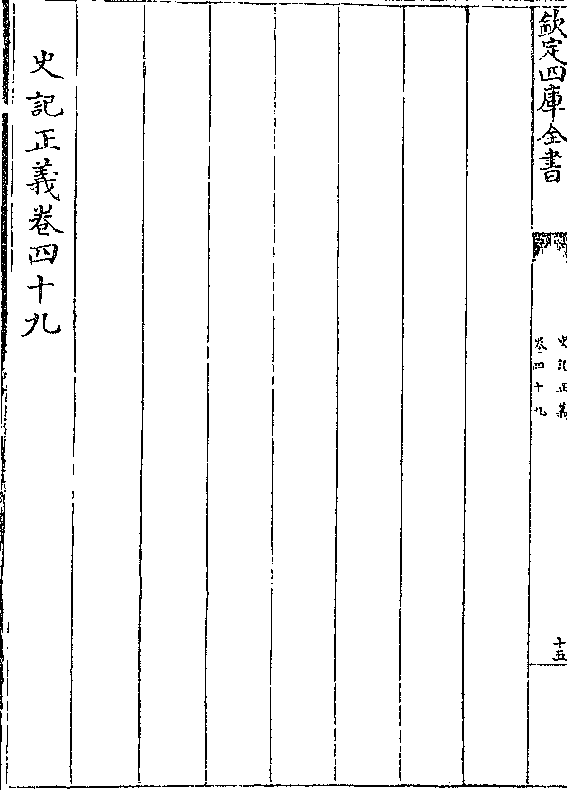 欽定四庫全書
史記正義
卷四十九
十五
史記正義卷四十九